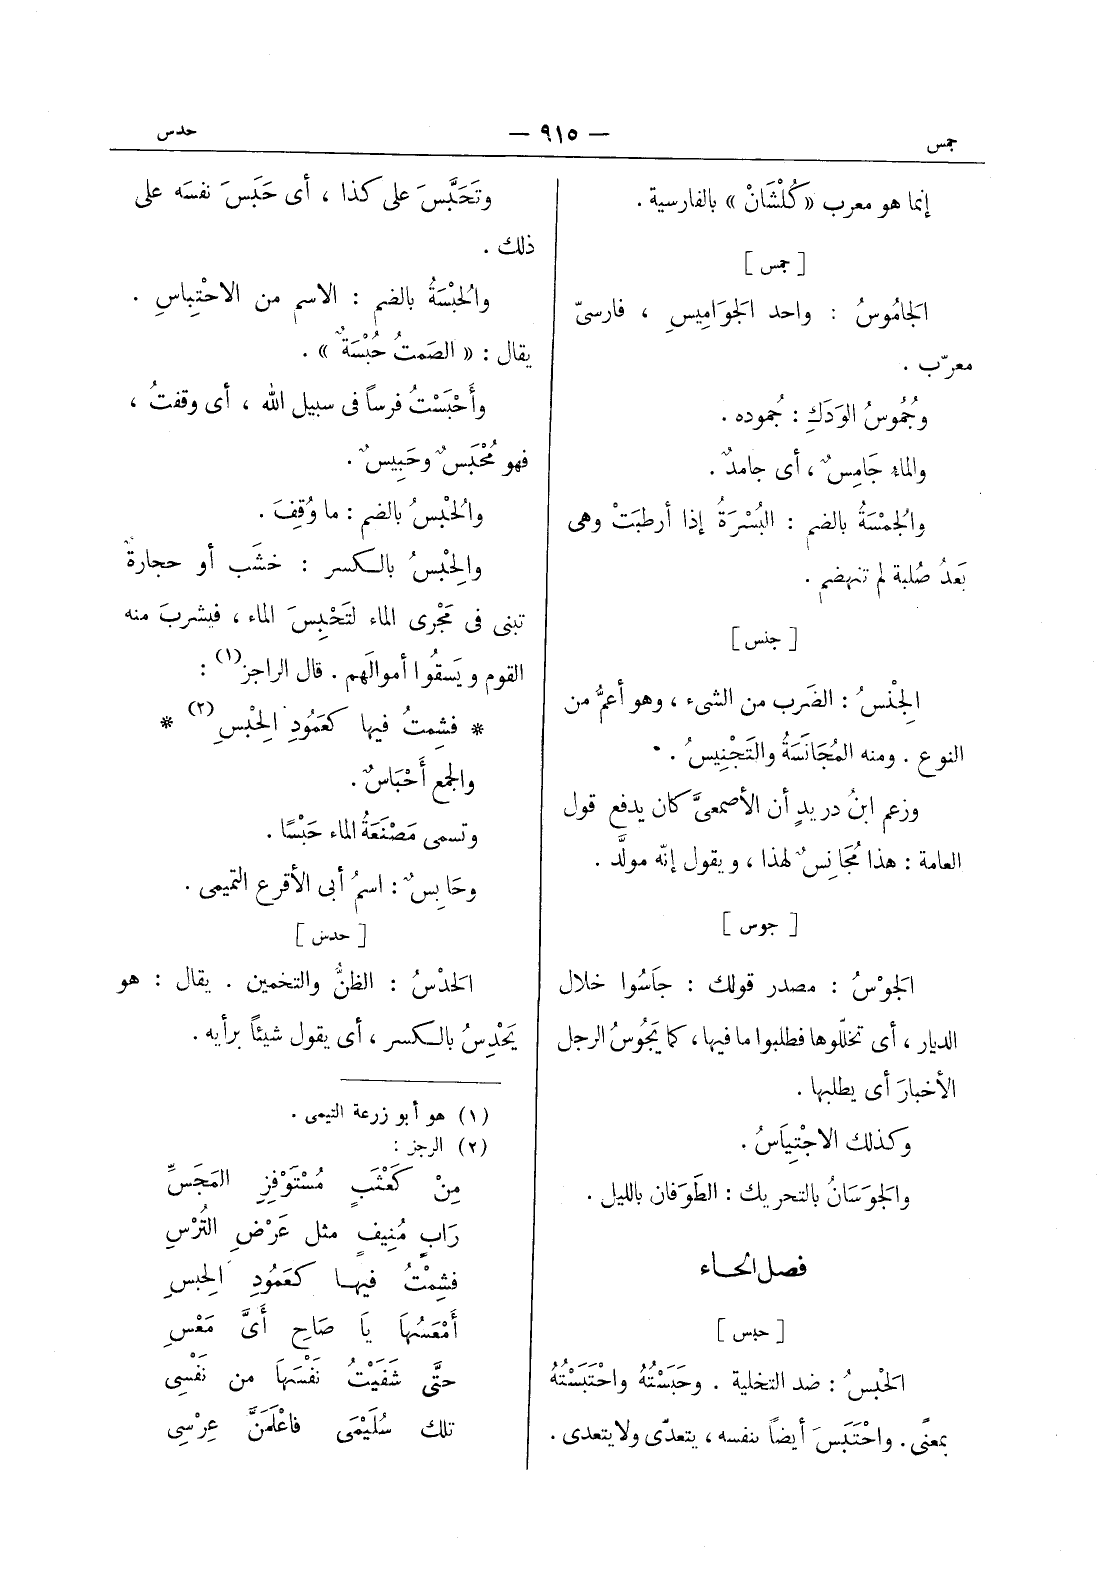 جمس
— ٩١٥ —
حدس
إنما هو معرب «كُلْشَانْ» بالفارسية .
[ جمس ]
الجَامُوسُ : واحد الجَوَامِيسِ ، فارسىّ
معرّب .
وجُمُوسُ الوَدَكِ : جُموده .
والماء جَامِسٌ ، أى جامدٌ .
والجُمْسَةُ بالضم : البُسْرَةُ إذا أرطبَتْ وهى
بَعدُ صُلبة لم تنهضم .
[ جنس ]
الجِنْسُ : الضَرب من الشىء ، وهو أعمُّ من
النوع . ومنه المُجَانَسَةُ والتَجْنِيسُ .
وزعم ابنُ دريدٍ أن الأصمعىَّ كان يدفع قول
العامة : هذا مُجَانِسٌ لهذا ، ويقول إنّه مولَّد .
[ جوس ]
الجَوْسُ : مصدر قولك : جَاسُوا خلال
الديار ، أى تخلّلوها فطلبوا ما فيها ، كما يَجُوسُ الرجل
الأخبارَ أى يطلبها .
وكذلك الاجْتِيَاسُ .
والجَوَسَانُ بالتحريك : الطَوَفان بالليل .
فصل الحاء
[ حبس ]
الحَبْسُ : ضد التخلية . وحَبَسْتُهُ واحْتَبَسْتُهُ
بمعنًى . واحْتَبَسَ أيضاً بنفسه ، يتعدّى ولا يتعدى .
وتَحَبَّسَ على كذا ، أى حَبَسَ نفسَه على
ذلك .
والحُبْسَةُ بالضم : الاسم من الاحْتِباسِ .
يقال : « الصَمتُ حُبْسَةٌ » .
وأَحْبَسْتُ فرساً فى سبيل الله ، أى وقفتُ ،
فهو مُحْبَسٌ وحَبِيسٌ .
والحُبْسُ بالضم : ما وُقِفَ .
والحِبْسُ بالكسر : خشَب أو حجارةٌ
تبنى فى مَجْرى الماء لتَحْبِسَ الماء ، فيشربَ منه
القوم ويَسقُوا أموالَهم . قال الراجز(١) :
* فشِمتُ فيها كعَمُودِ الحِبْسِ(٢) *
والجمع أَحْبَاسٌ .
وتسمى مَصْنَعَةُ الماء حَبْسًا .
وحَابِسٌ : اسمُ أبى الأقرع التميمى .
[ حدس ]
الحَدْسُ : الظنُّ والتخمين . يقال : هو
يَحْدِسُ بالكسر ، أى يقول شيئاً برأيه .
(١) هو أبو زرعة التيمى .
(٢) الرجز :
مِنْ كَعْثَبٍ مُسْتَوْفِزِ المَجَسِّ
رَابٍ مُنِيفٍ مثل عَرْضِ التُرْسِ
فشِمْتُ فيها كعَمُودِ الحِبسِ
أَمْعَسُهَا يَا صَاحِ أَىَّ مَعْسِ
حتَّى شَفَيْتُ نَفْسَهَا من نَفْسِى
تلك سُلَيْمَى فاعْلَمَنَّ عِرْسِى